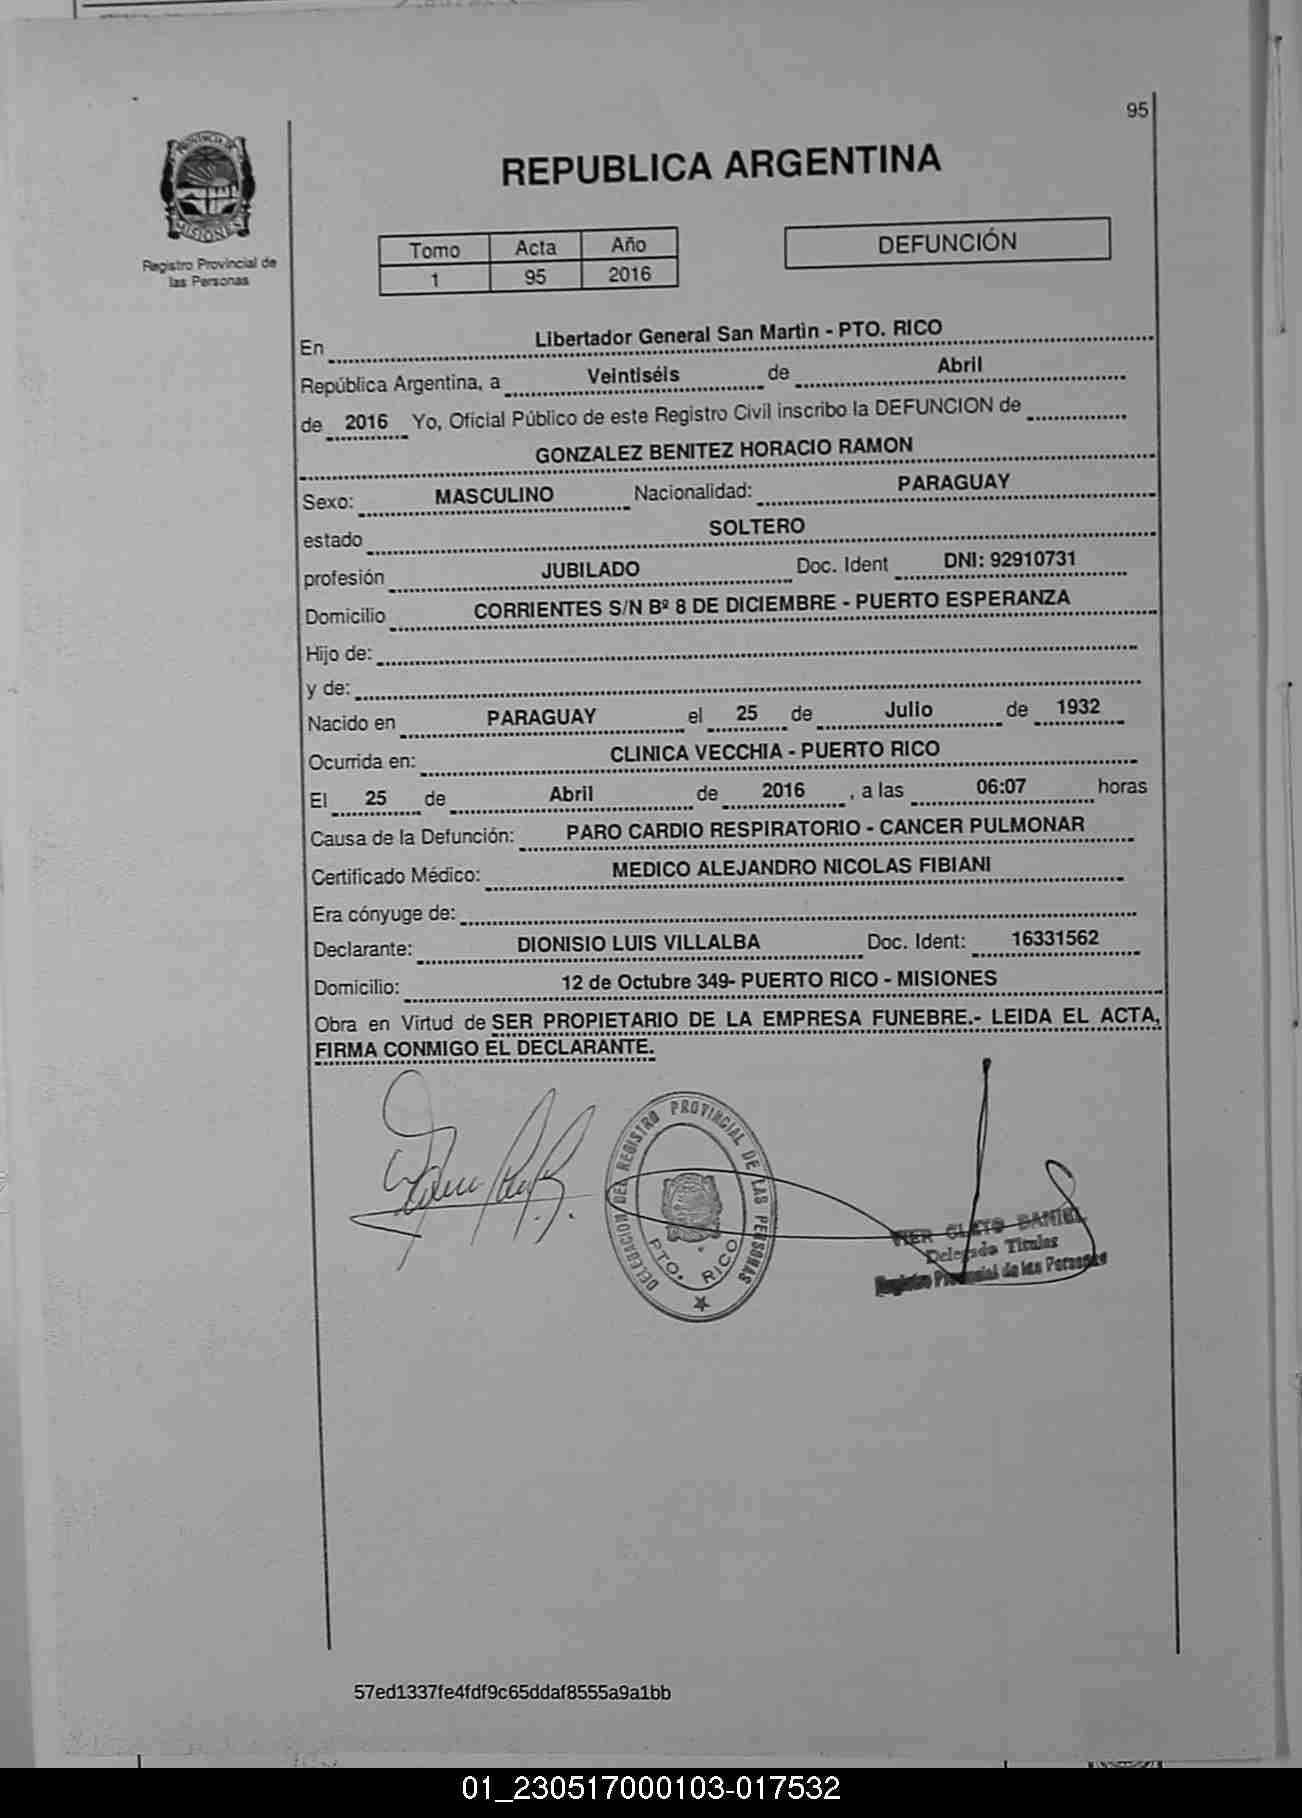 95
PROVINCIA DE
MISIONES
Registro Provincial de
las Personas
REPUBLICA ARGENTINA
Tomo Acta Año
1 95 2016
DEFUNCIÓN
En Libertador General San Martìn - PTO. RICO
República Argentina, a Veintiséis de Abril
de 2016 Yo, Oficial Público de este Registro Civil inscribo la DEFUNCION de
GONZALEZ BENITEZ HORACIO RAMON
Sexo: MASCULINO Nacionalidad: PARAGUAY
estado SOLTERO
profesión JUBILADO Doc. Ident DNI: 92910731
Domicilio CORRIENTES S/N Bº 8 DE DICIEMBRE - PUERTO ESPERANZA
Hijo de:
y de:
Nacido en PARAGUAY el 25 de Julio de 1932
Ocurrida en: CLINICA VECCHIA - PUERTO RICO
El 25 de Abril de 2016 , a las 06:07 horas
Causa de la Defunción: PARO CARDIO RESPIRATORIO - CANCER PULMONAR
Certificado Médico: MEDICO ALEJANDRO NICOLAS FIBIANI
Era cónyuge de:
Declarante: DIONISIO LUIS VILLALBA Doc. Ident: 16331562
Domicilio: 12 de Octubre 349- PUERTO RICO - MISIONES
Obra en Virtud de SER PROPIETARIO DE LA EMPRESA FUNEBRE.- LEIDA EL ACTA,
FIRMA CONMIGO EL DECLARANTE.
DELEGACION DEL REGISTRO PROVINCIAL DE LAS PERSONAS
PTO. RICO
CLETO DANIEL
Delegado Titular
Registro Provincial de las Personas
57ed1337fe4fdf9c65ddaf8555a9a1bb
01_230517000103-017532